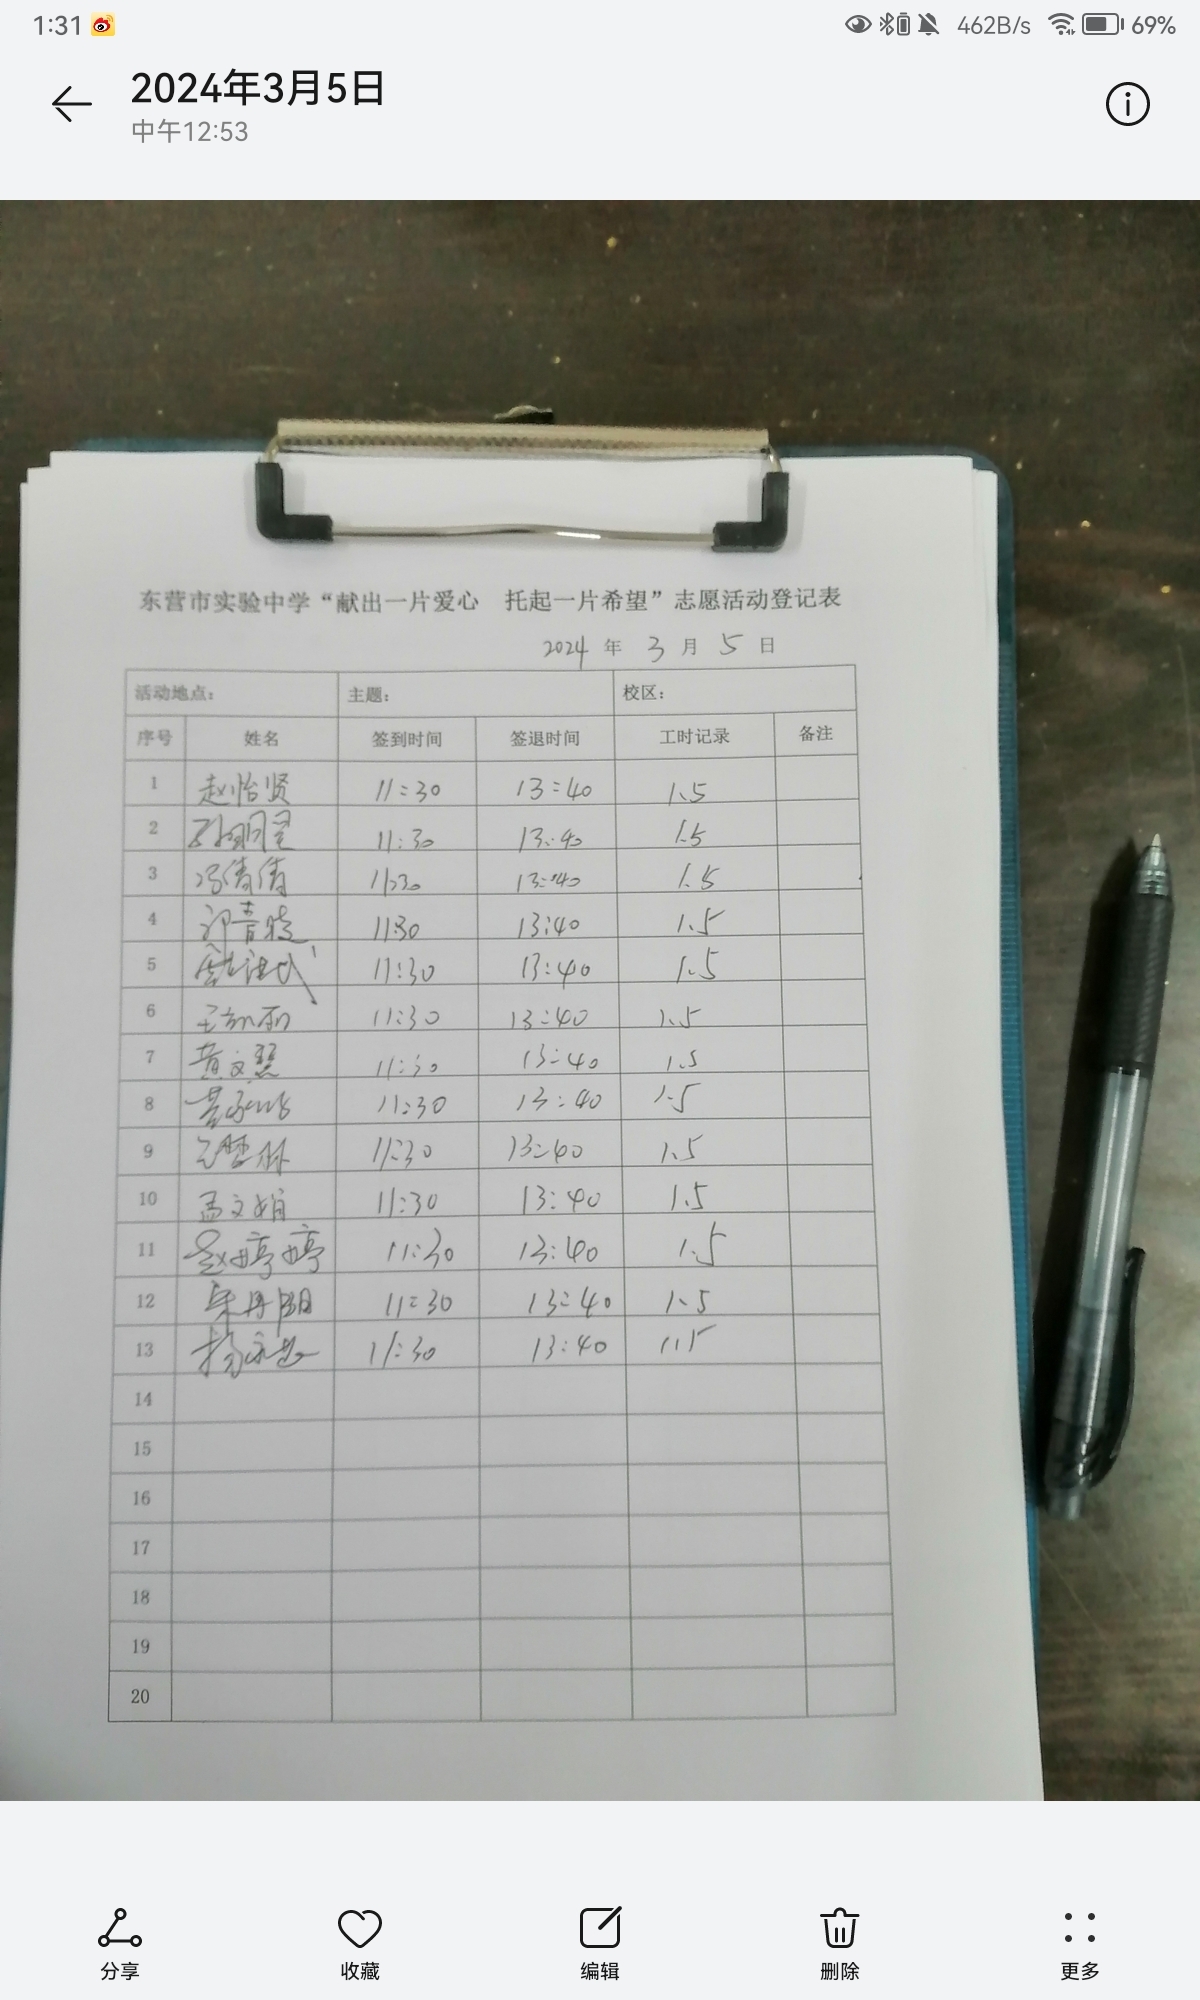 1:31
462B/s
69%
2024年3月5日
中午12:53
东营市实验中学“献出一片爱心 托起一片希望”志愿活动登记表
2024 年 3 月 5 日
活动地点： 主题： 校区：
序号 姓名 签到时间 签退时间 工时记录 备注
1 赵怡贤 11:30 13:40 1.5
2 11:30 13:40 1.5
3 冯倩倩 11:30 13:40 1.5
4 11:30 13:40 1.5
5 11:30 13:40 1.5
6 11:30 13:40 1.5
7 黄文慧 11:30 13:40 1.5
8 11:30 13:40 1.5
9 11:30 13:40 1.5
10 孟文娟 11:30 13:40 1.5
11 赵婷婷 11:30 13:40 1.5
12 11:30 13:40 1.5
13 11:30 13:40 1.5
14
15
16
17
18
19
20
分享 收藏 编辑 删除 更多